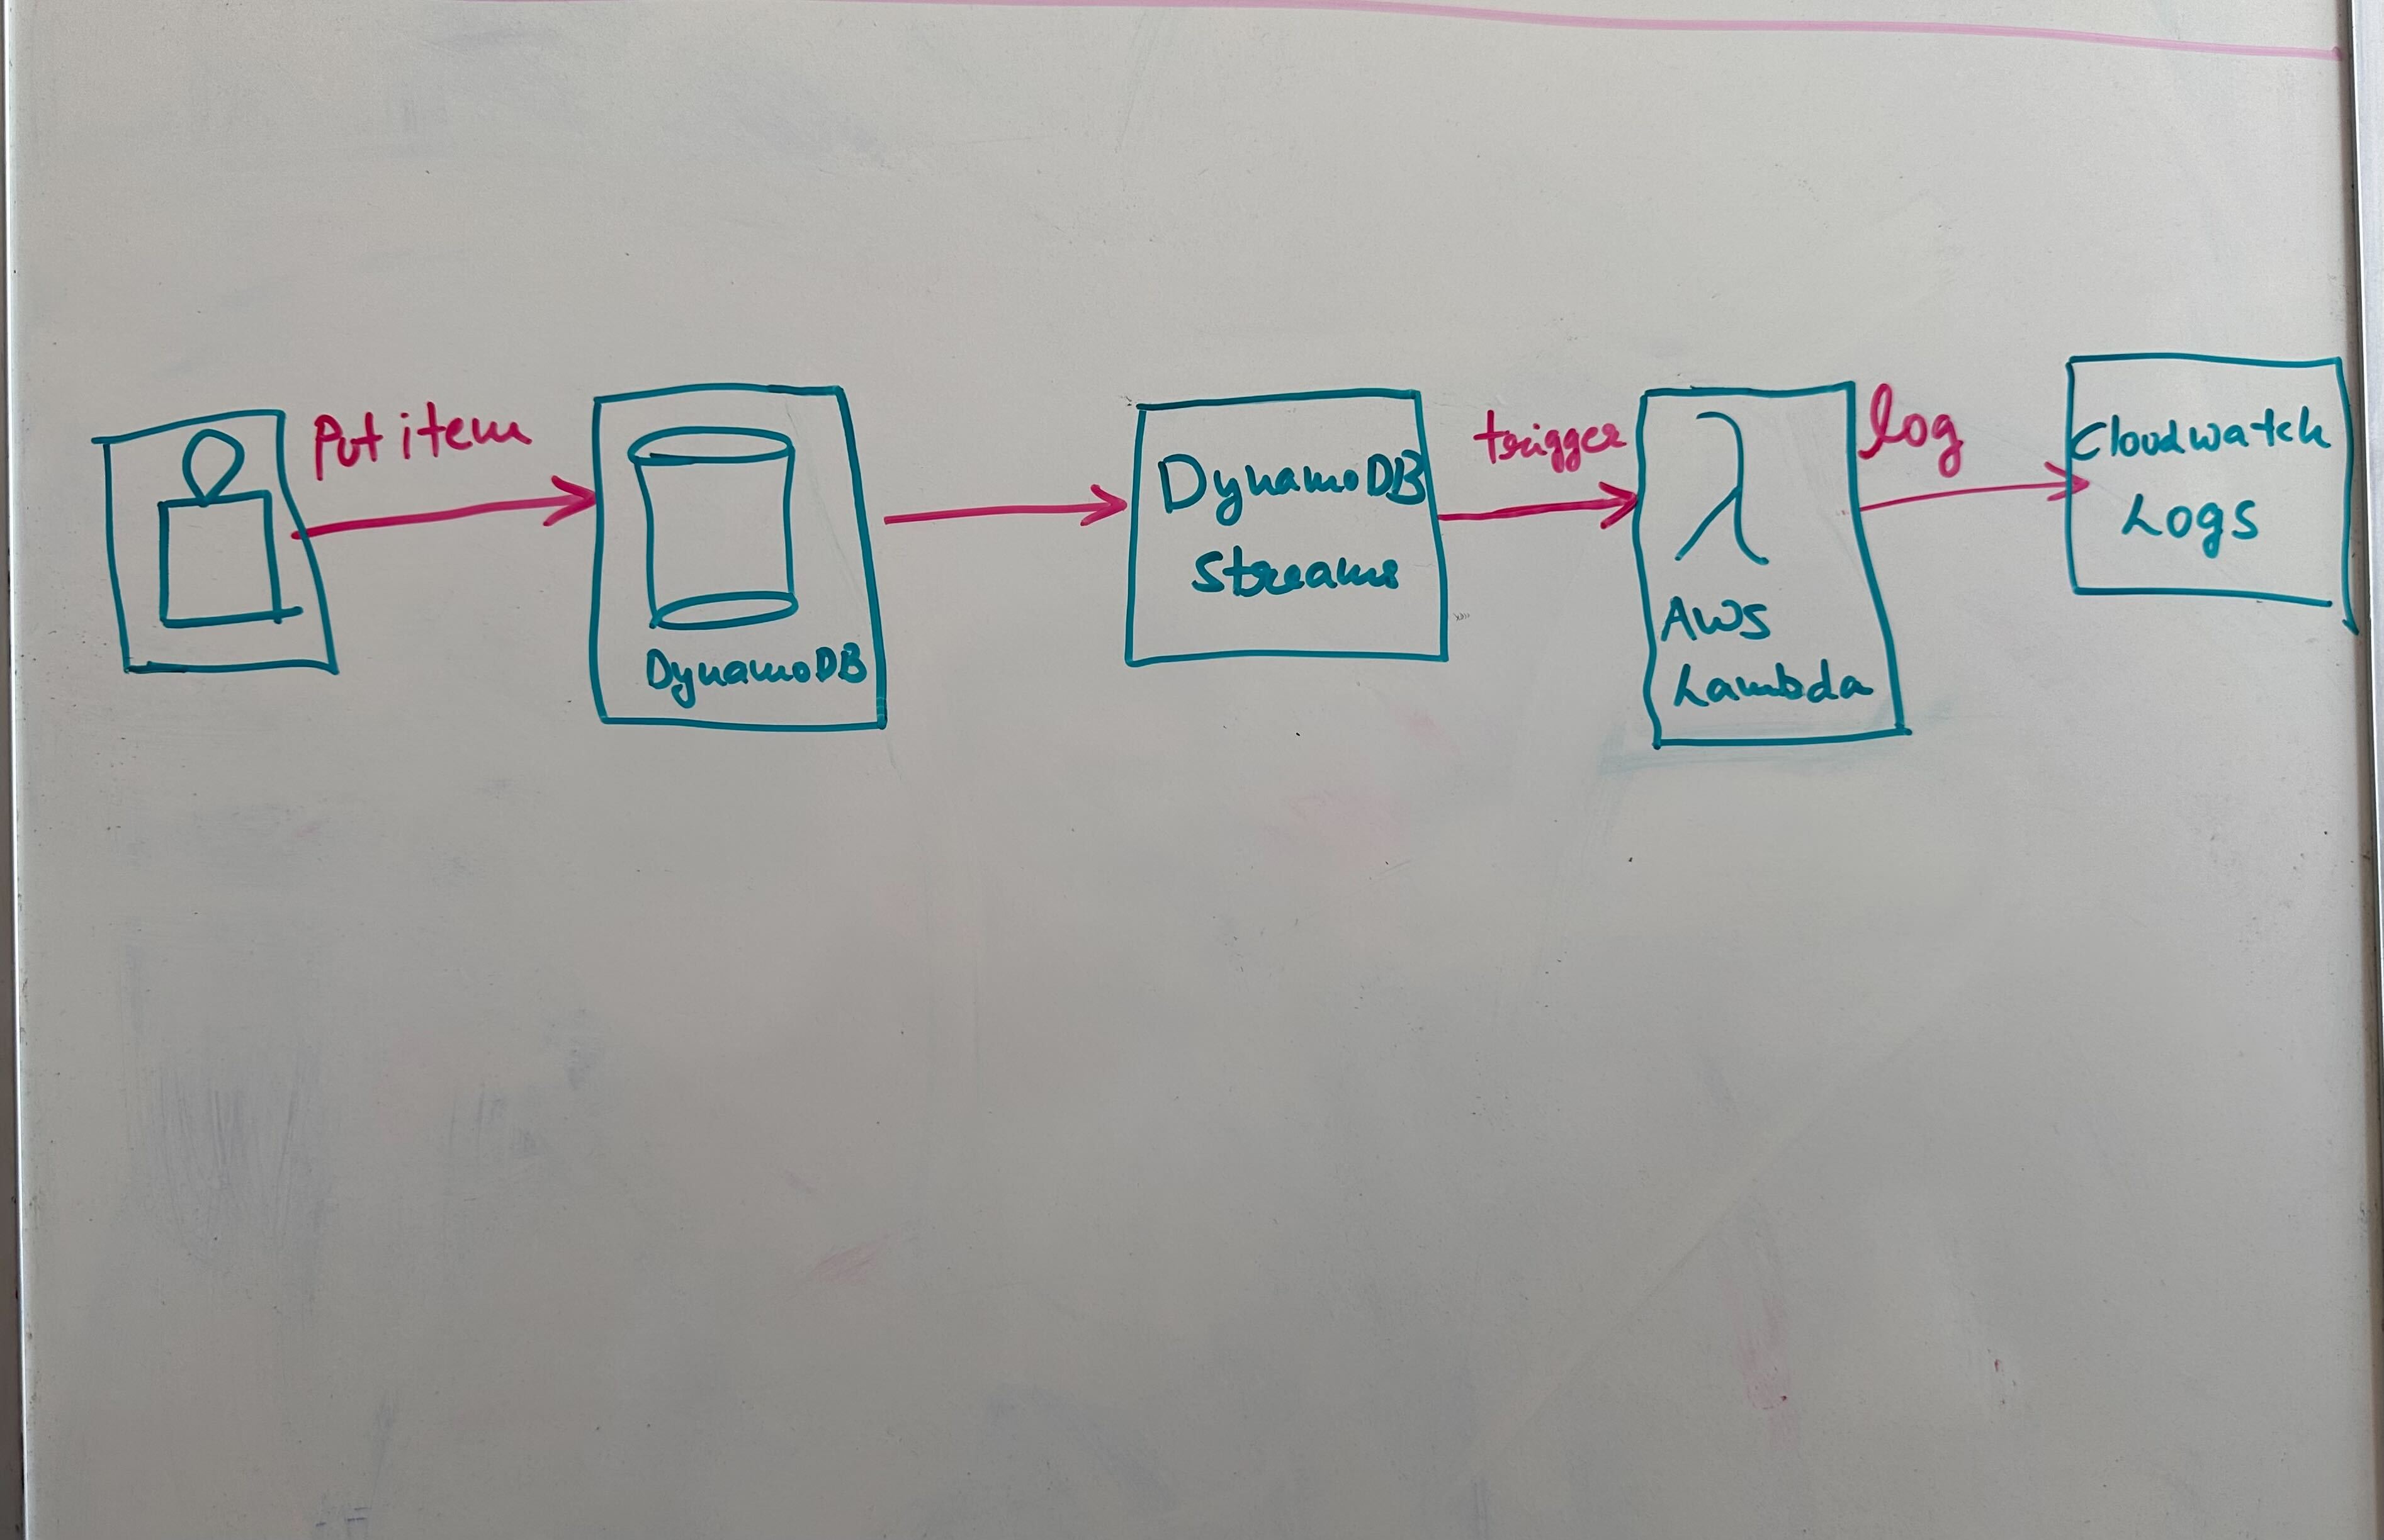 Put item
DynamoDB
DynamoDB
Streams
trigger
AWS
Lambda
log
Cloudwatch
Logs